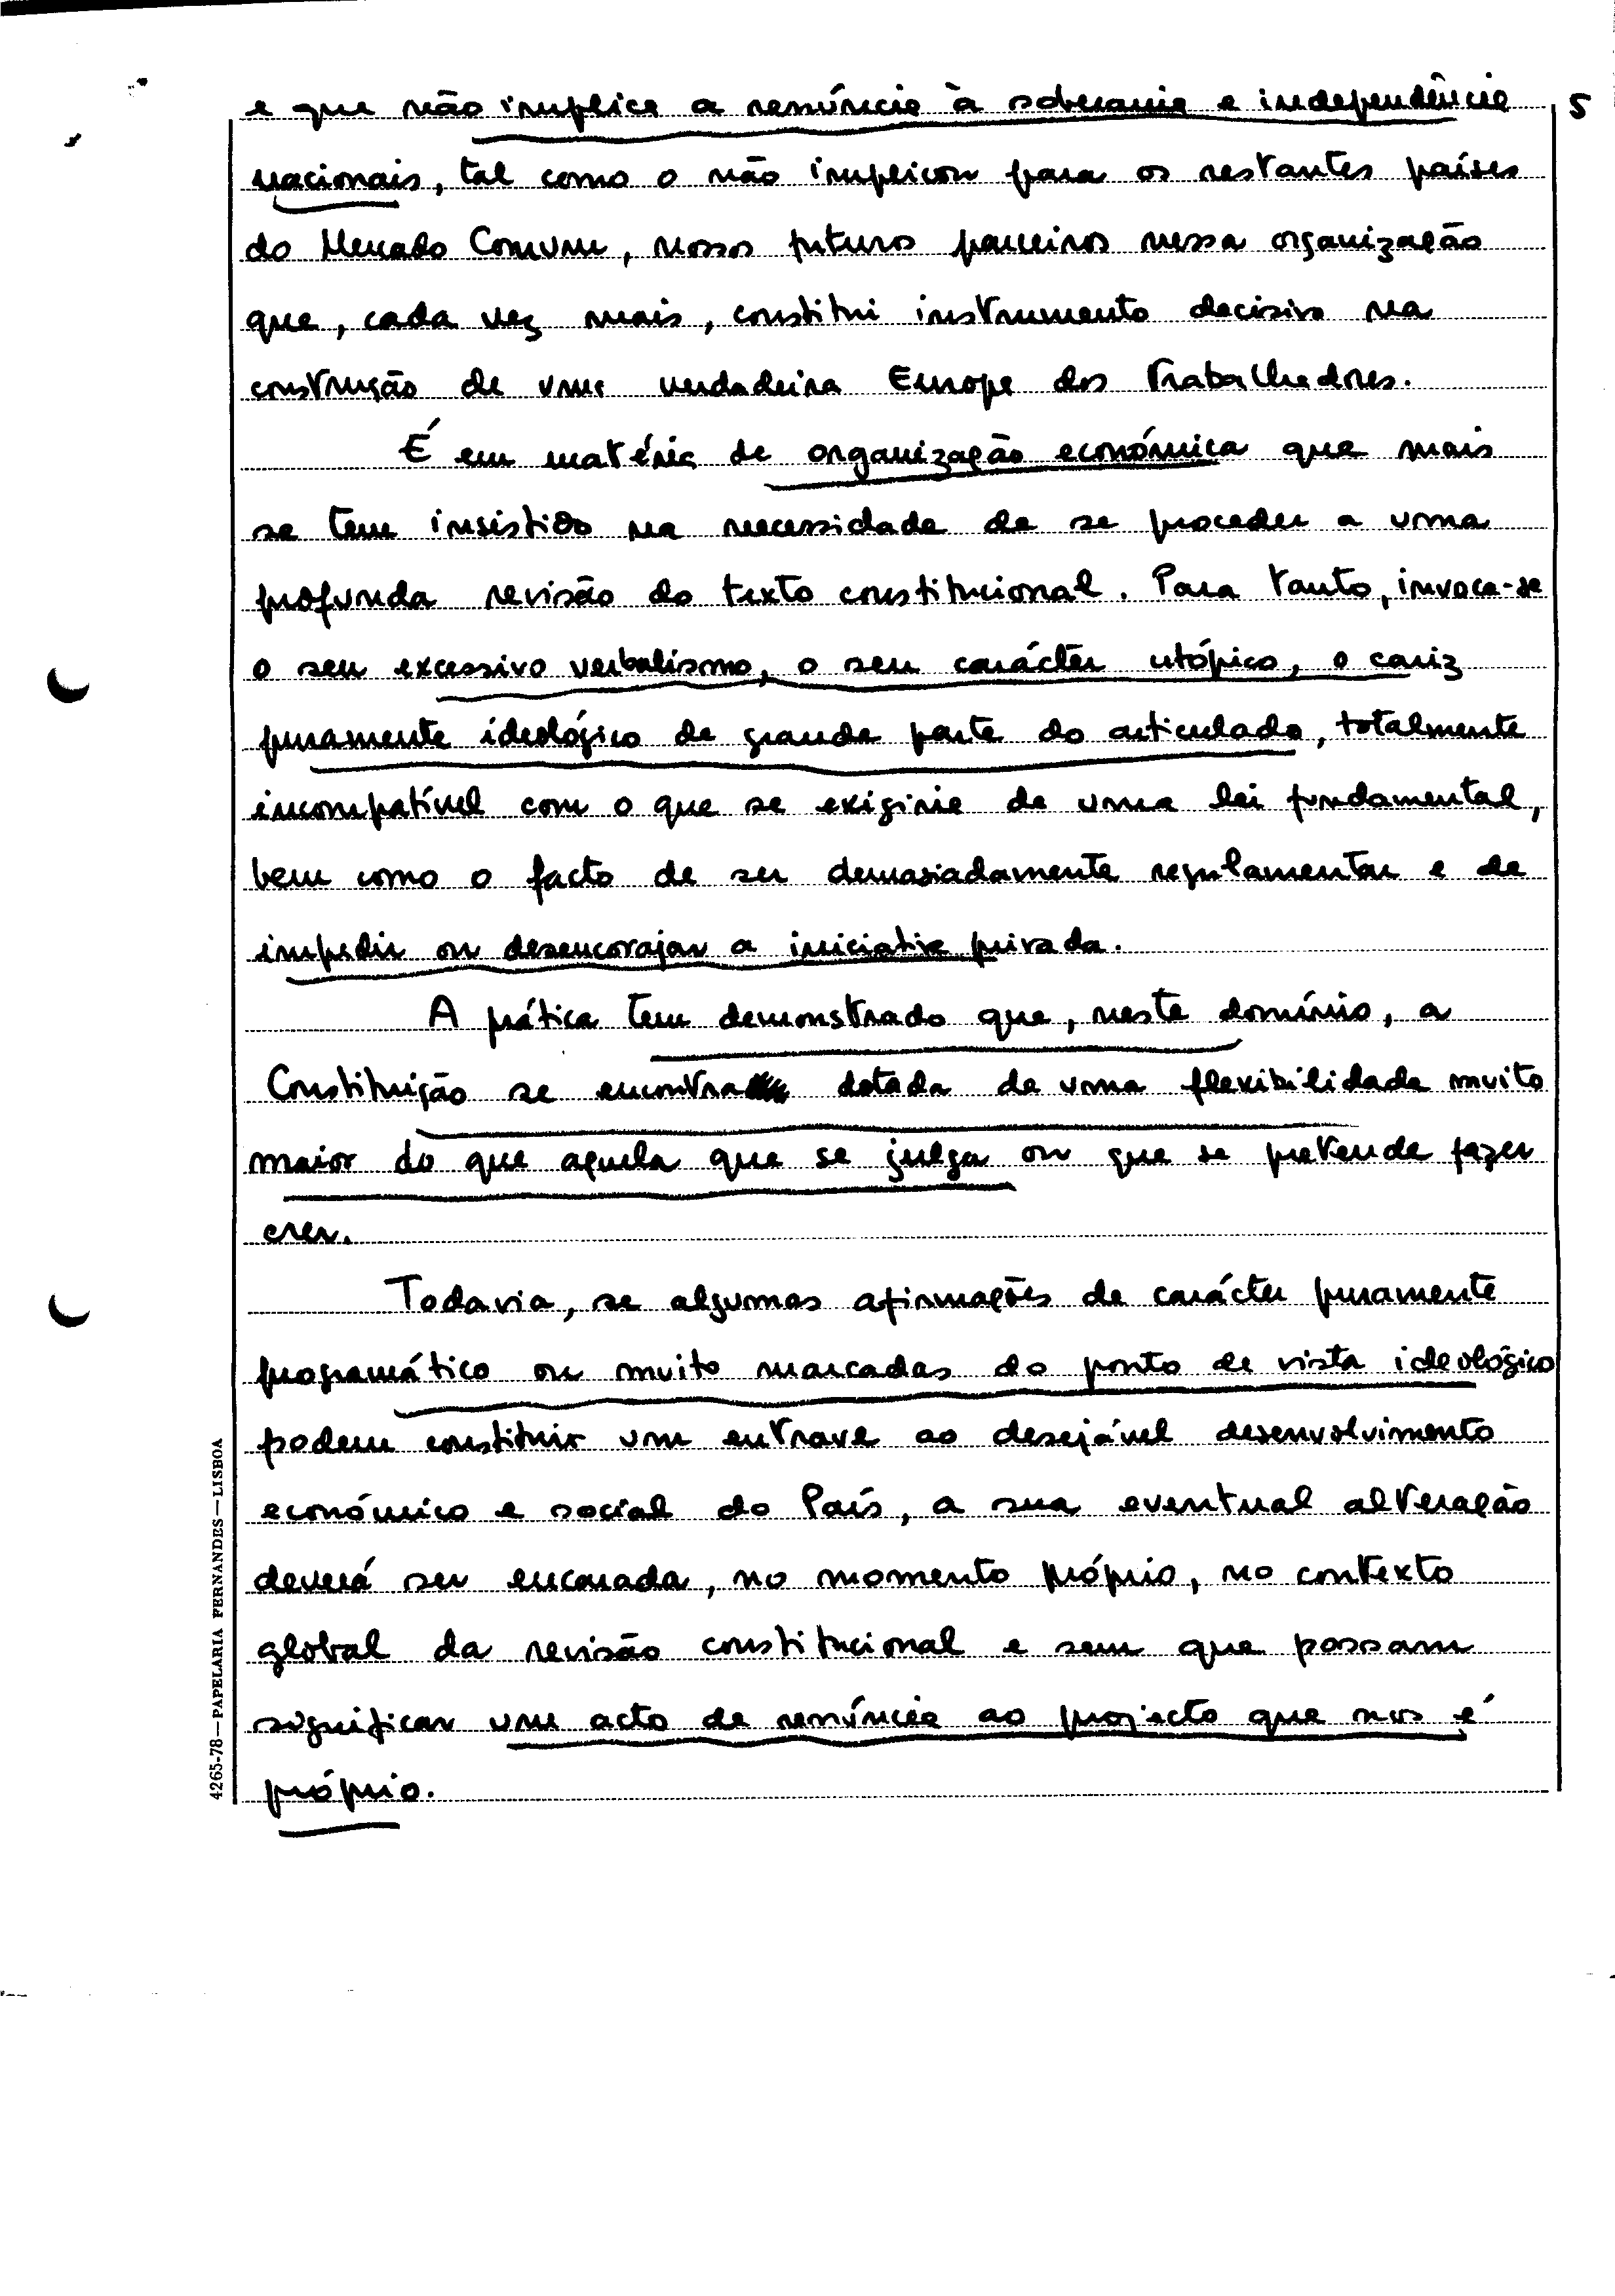 e que não implica a renúncia à soberania e independência 5
nacionais, tal como o não implicou para os restantes países
do Mercado Comum, nossos futuros parceiros nessa organização
que, cada vez mais, constitui instrumento decisivo na
construção de uma verdadeira Europa dos Trabalhadores.
É em matéria de organização económica que mais
se tem insistido na necessidade de se proceder a uma
profunda revisão do texto constitucional. Para tanto, invoca-se
o seu excessivo verbalismo, o seu carácter utópico, o cariz
puramente ideológico de grande parte do articulado, totalmente
incompatível com o que se exigiria de uma lei fundamental,
bem como o facto de ser demasiadamente regulamentar e de
impedir ou desencorajar a iniciativa privada.
A prática tem demonstrado que, neste domínio, a
Constituição se encontra dotada de uma flexibilidade muito
maior do que aquela que se julga ou que se pretende fazer
crer.
Todavia, se algumas afirmações de carácter puramente
programático ou muito marcadas do ponto de vista ideológico
podem constituir um entrave ao desejável desenvolvimento
económico e social do País, a sua eventual alteração
deverá ser encarada, no momento próprio, no contexto
global da revisão constitucional e sem que possam
significar um acto de renúncia ao projecto que nos é
próprio.
4265-78—PAPELARIA FERNANDES—LISBOA